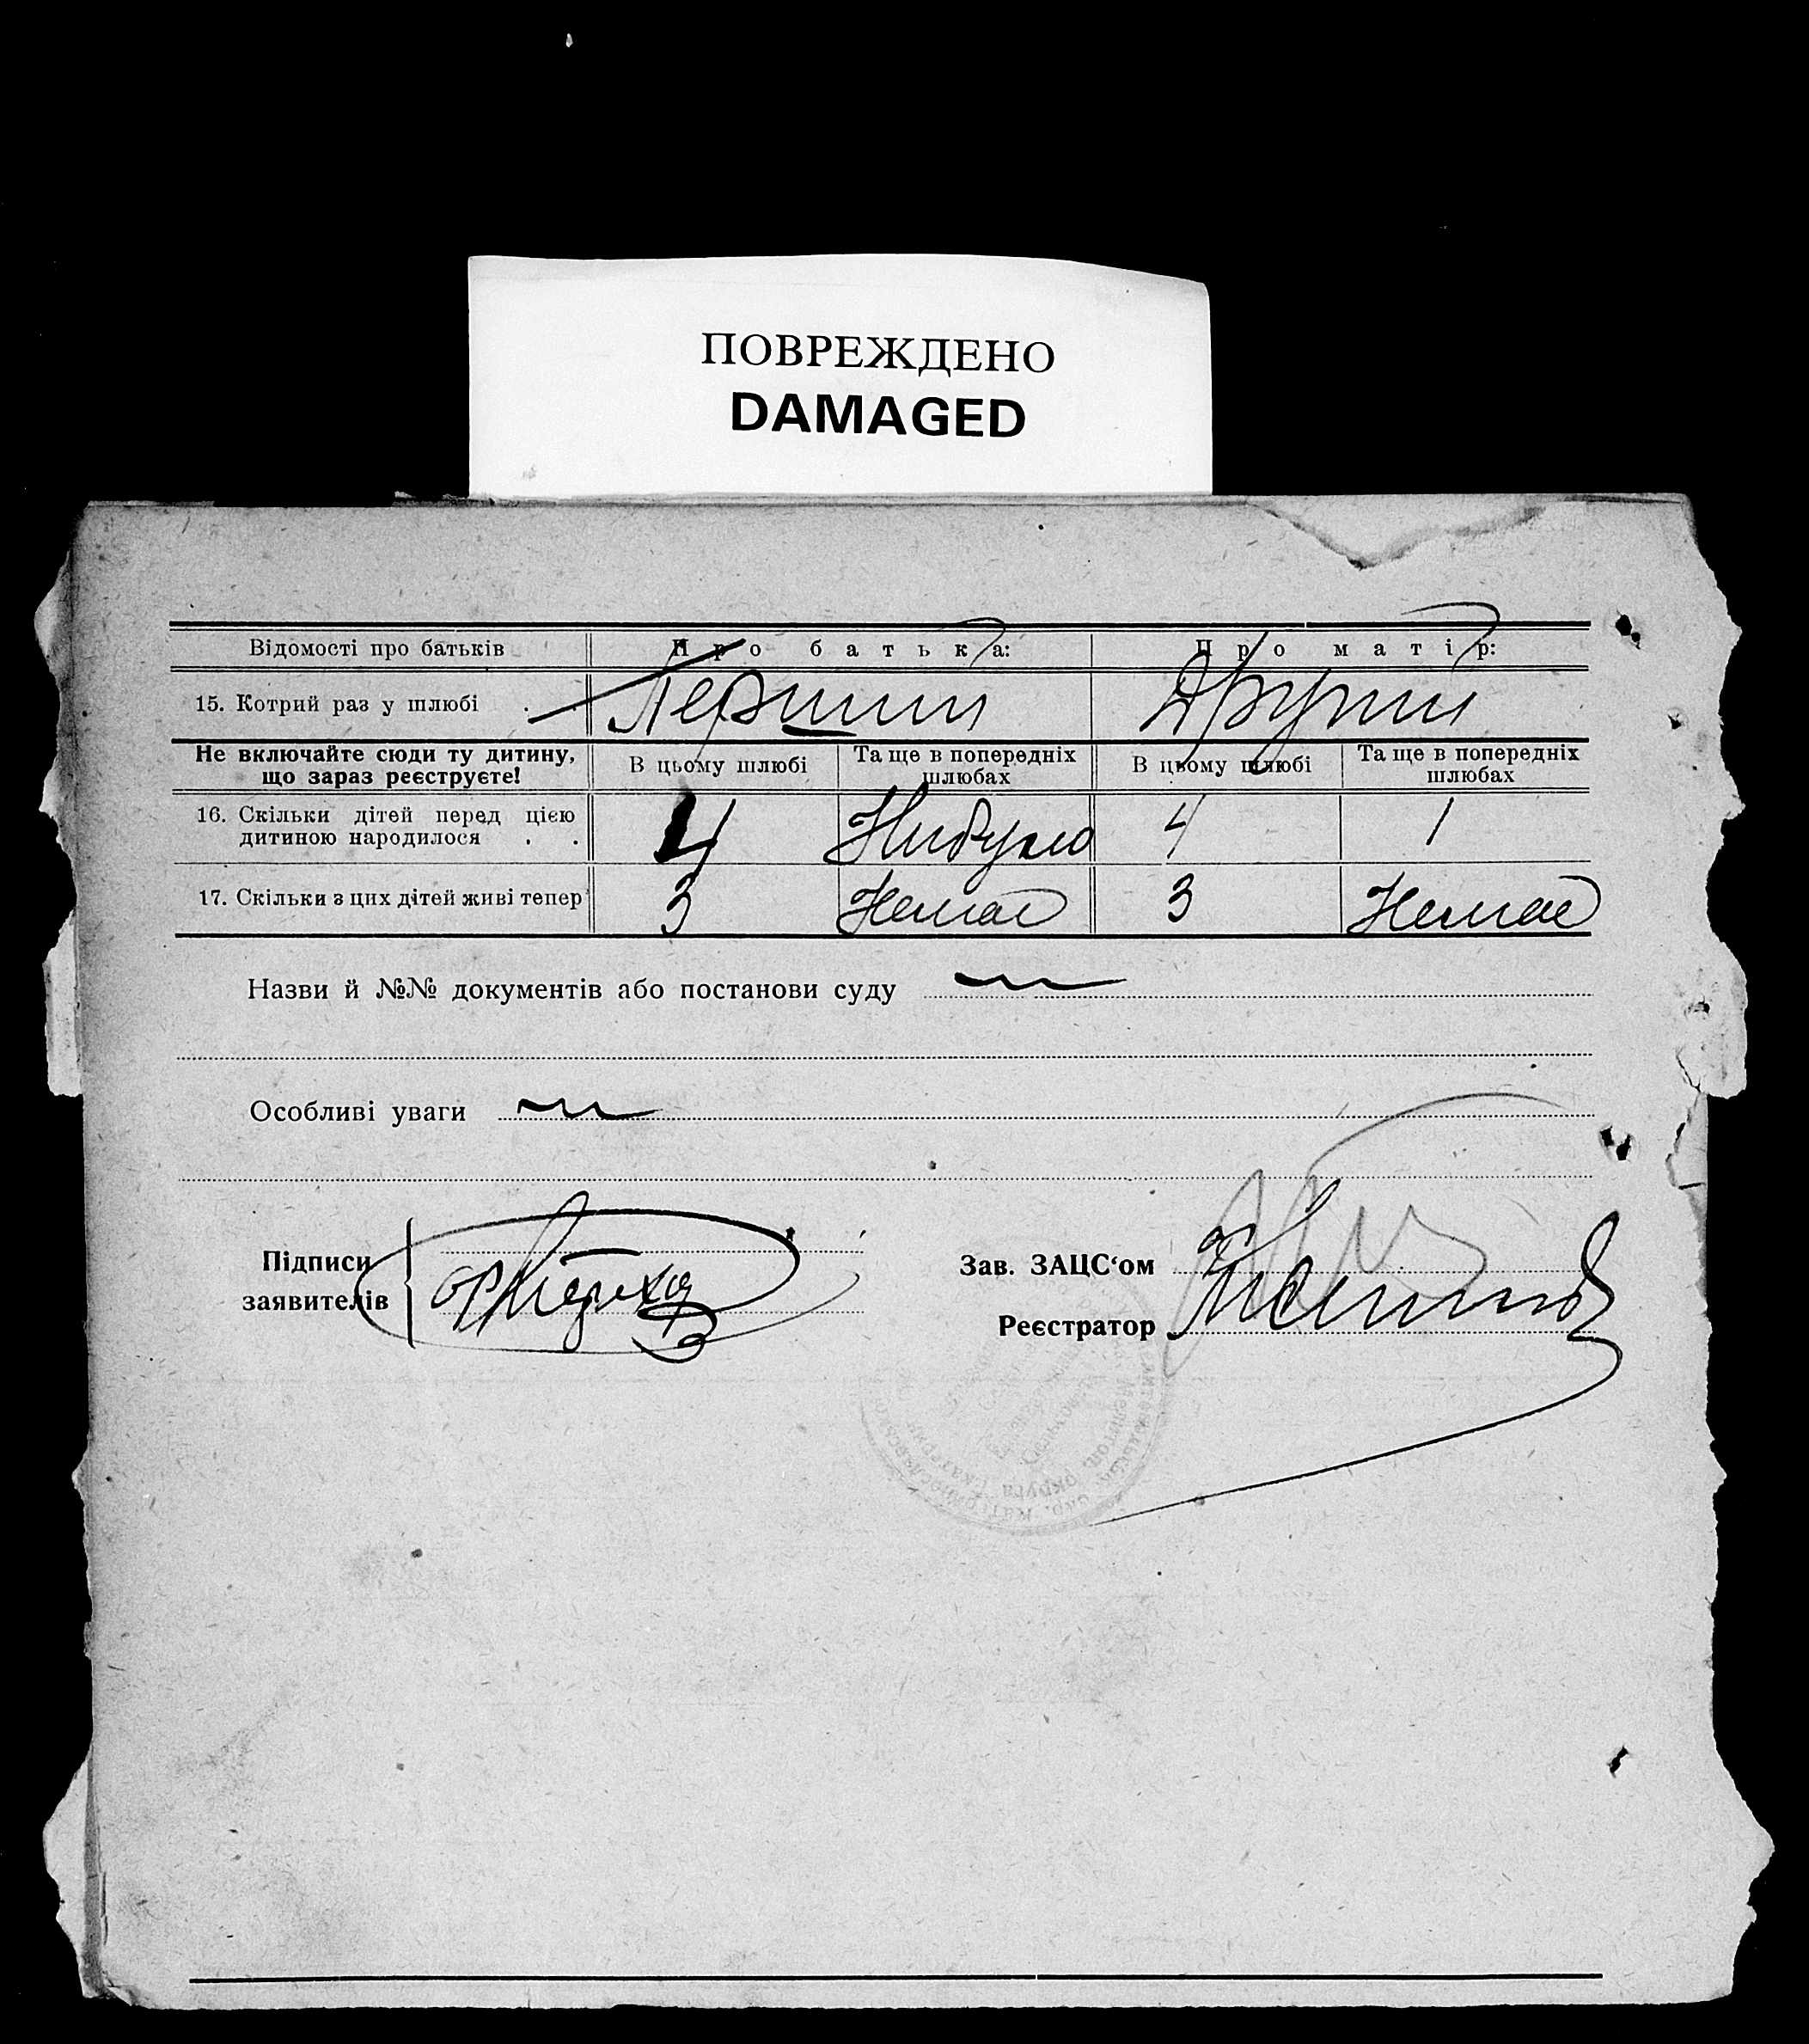 ПОВРЕЖДЕНО
DAMAGED
Відомості про батьків Про батька: Про матір:
15. Котрий раз у шлюбі . . Перший Другий
Не включайте сюди ту дитину, що зараз реєструєте! В цьому шлюбі Та ще в попередніх шлюбах В цьому шлюбі Та ще в попередніх шлюбах
16. Скільки дітей перед цією дитиною народилося . . 4 Нибуло 4 1
17. Скільки з цих дітей живі тепер 3 Немає 3 Немає
Назви й №№ документів або постанови суду
Особливі уваги
Підписи
заявителів
Зав. ЗАЦС‘ом
Реєстратор